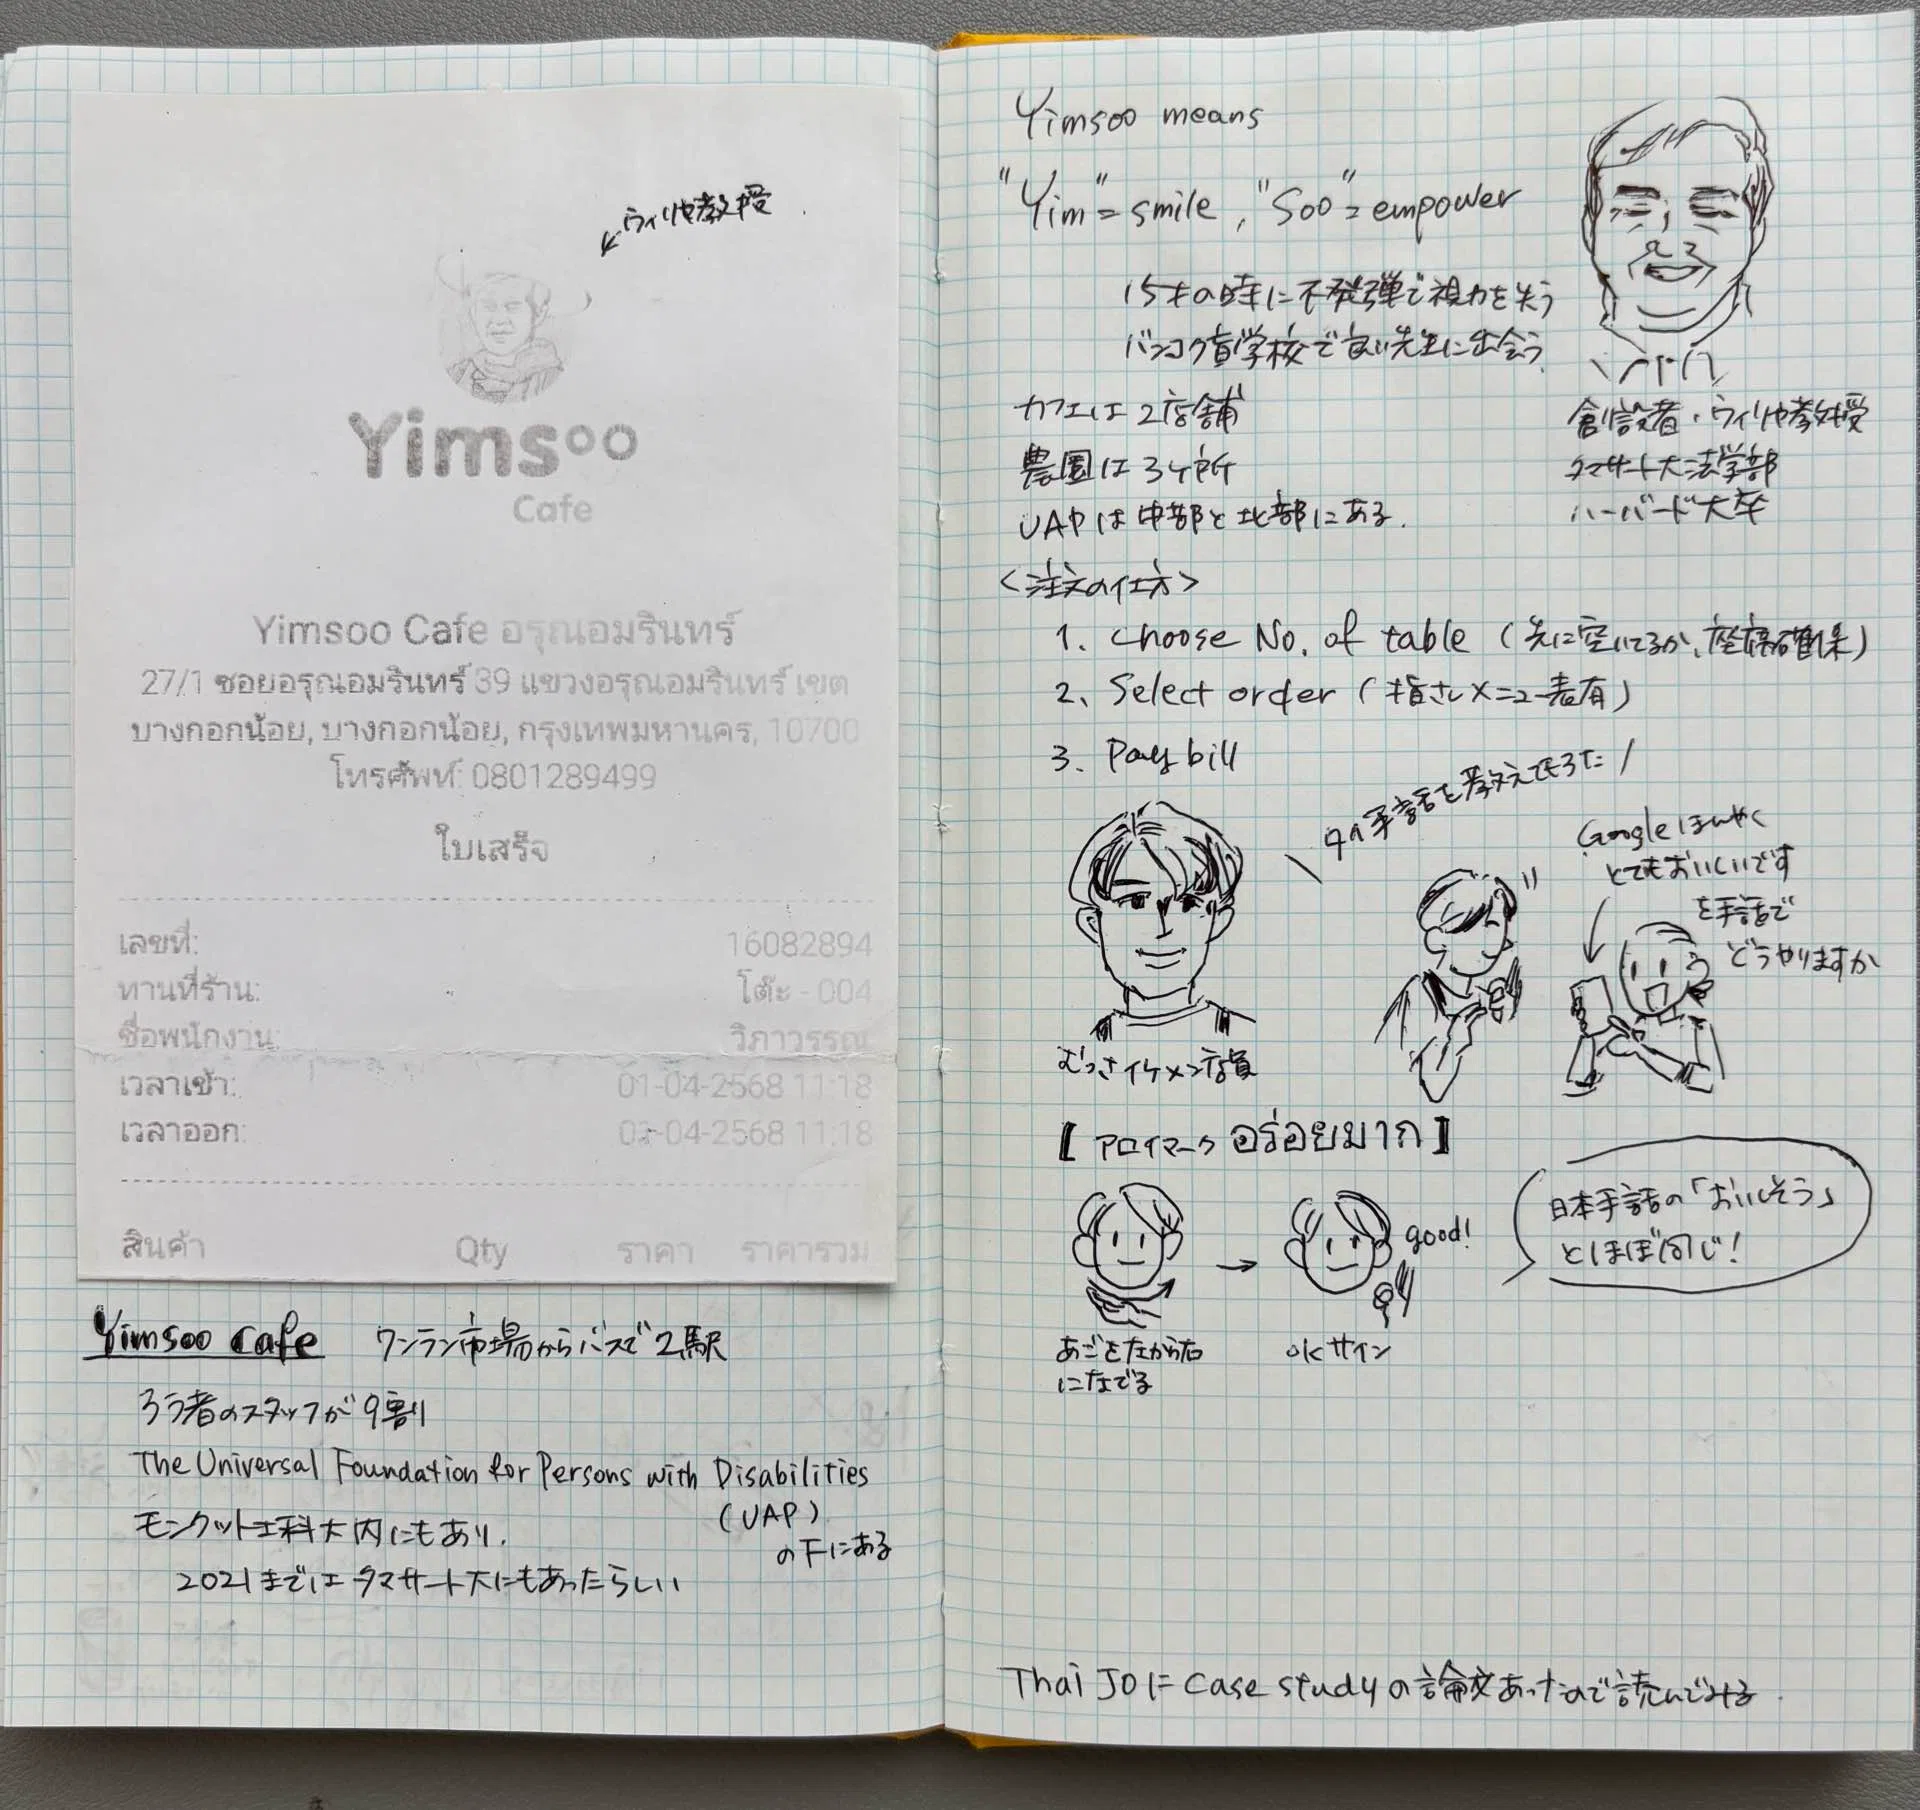 ←ウィリヤ教授
Yimsoo
Cafe
Yimsoo Cafe อรุณอมรินทร์
27/1 ซอยอรุณอมรินทร์ 39 แขวงอรุณอมรินทร์ เขต
บางกอกน้อย, บางกอกน้อย, กรุงเทพมหานคร, 10700
โทรศัพท์: 0801289499
ใบเสร็จ
เลขที่: 16082894
ทานที่ร้าน: โต๊ะ - 004
ชื่อพนักงาน: วิภาวรรณ
เวลาเข้า: 01-04-2568 11:18
เวลาออก: 01-04-2568 11:18
สินค้า Qty ราคา ราคารวม
Yimsoo cafe ワンラン市場からバスで2駅
ろう者のスタッフが9割
The Universal Foundation for Persons with Disabilities
(UAP)
の下にある
モンクット工科大内にもあり.
2021まではタマサート大にもあったらしい
Yimsoo means
"Yim"=smile, "Soo"=empower
15才の時に不発弾で視力を失う
バンコク盲学校で良い先生に出会う
カフェは2店舗
農園は3ヶ所
UAPは中部と北部にある.
創設者・ウィリヤ教授
タマサート大法学部
ハーバード大卒
<注文の仕方>
1. choose No. of table (先に空いてるか、座席確保)
2、Select order (指さしメニュー表有)
3. Pay bill
タイ手話を教えてもらった/
Googleほんやく
とてもおいしいです
を手話で
どうやりますか
むっさイケメン店員
【アロイマーク อร่อยมาก】
good!
日本手話の「おいしそう」
とほぼ同じ!
あごを左から右
になでる
OKサイン
Thai JOにcase studyの論文あったので読んでみる.